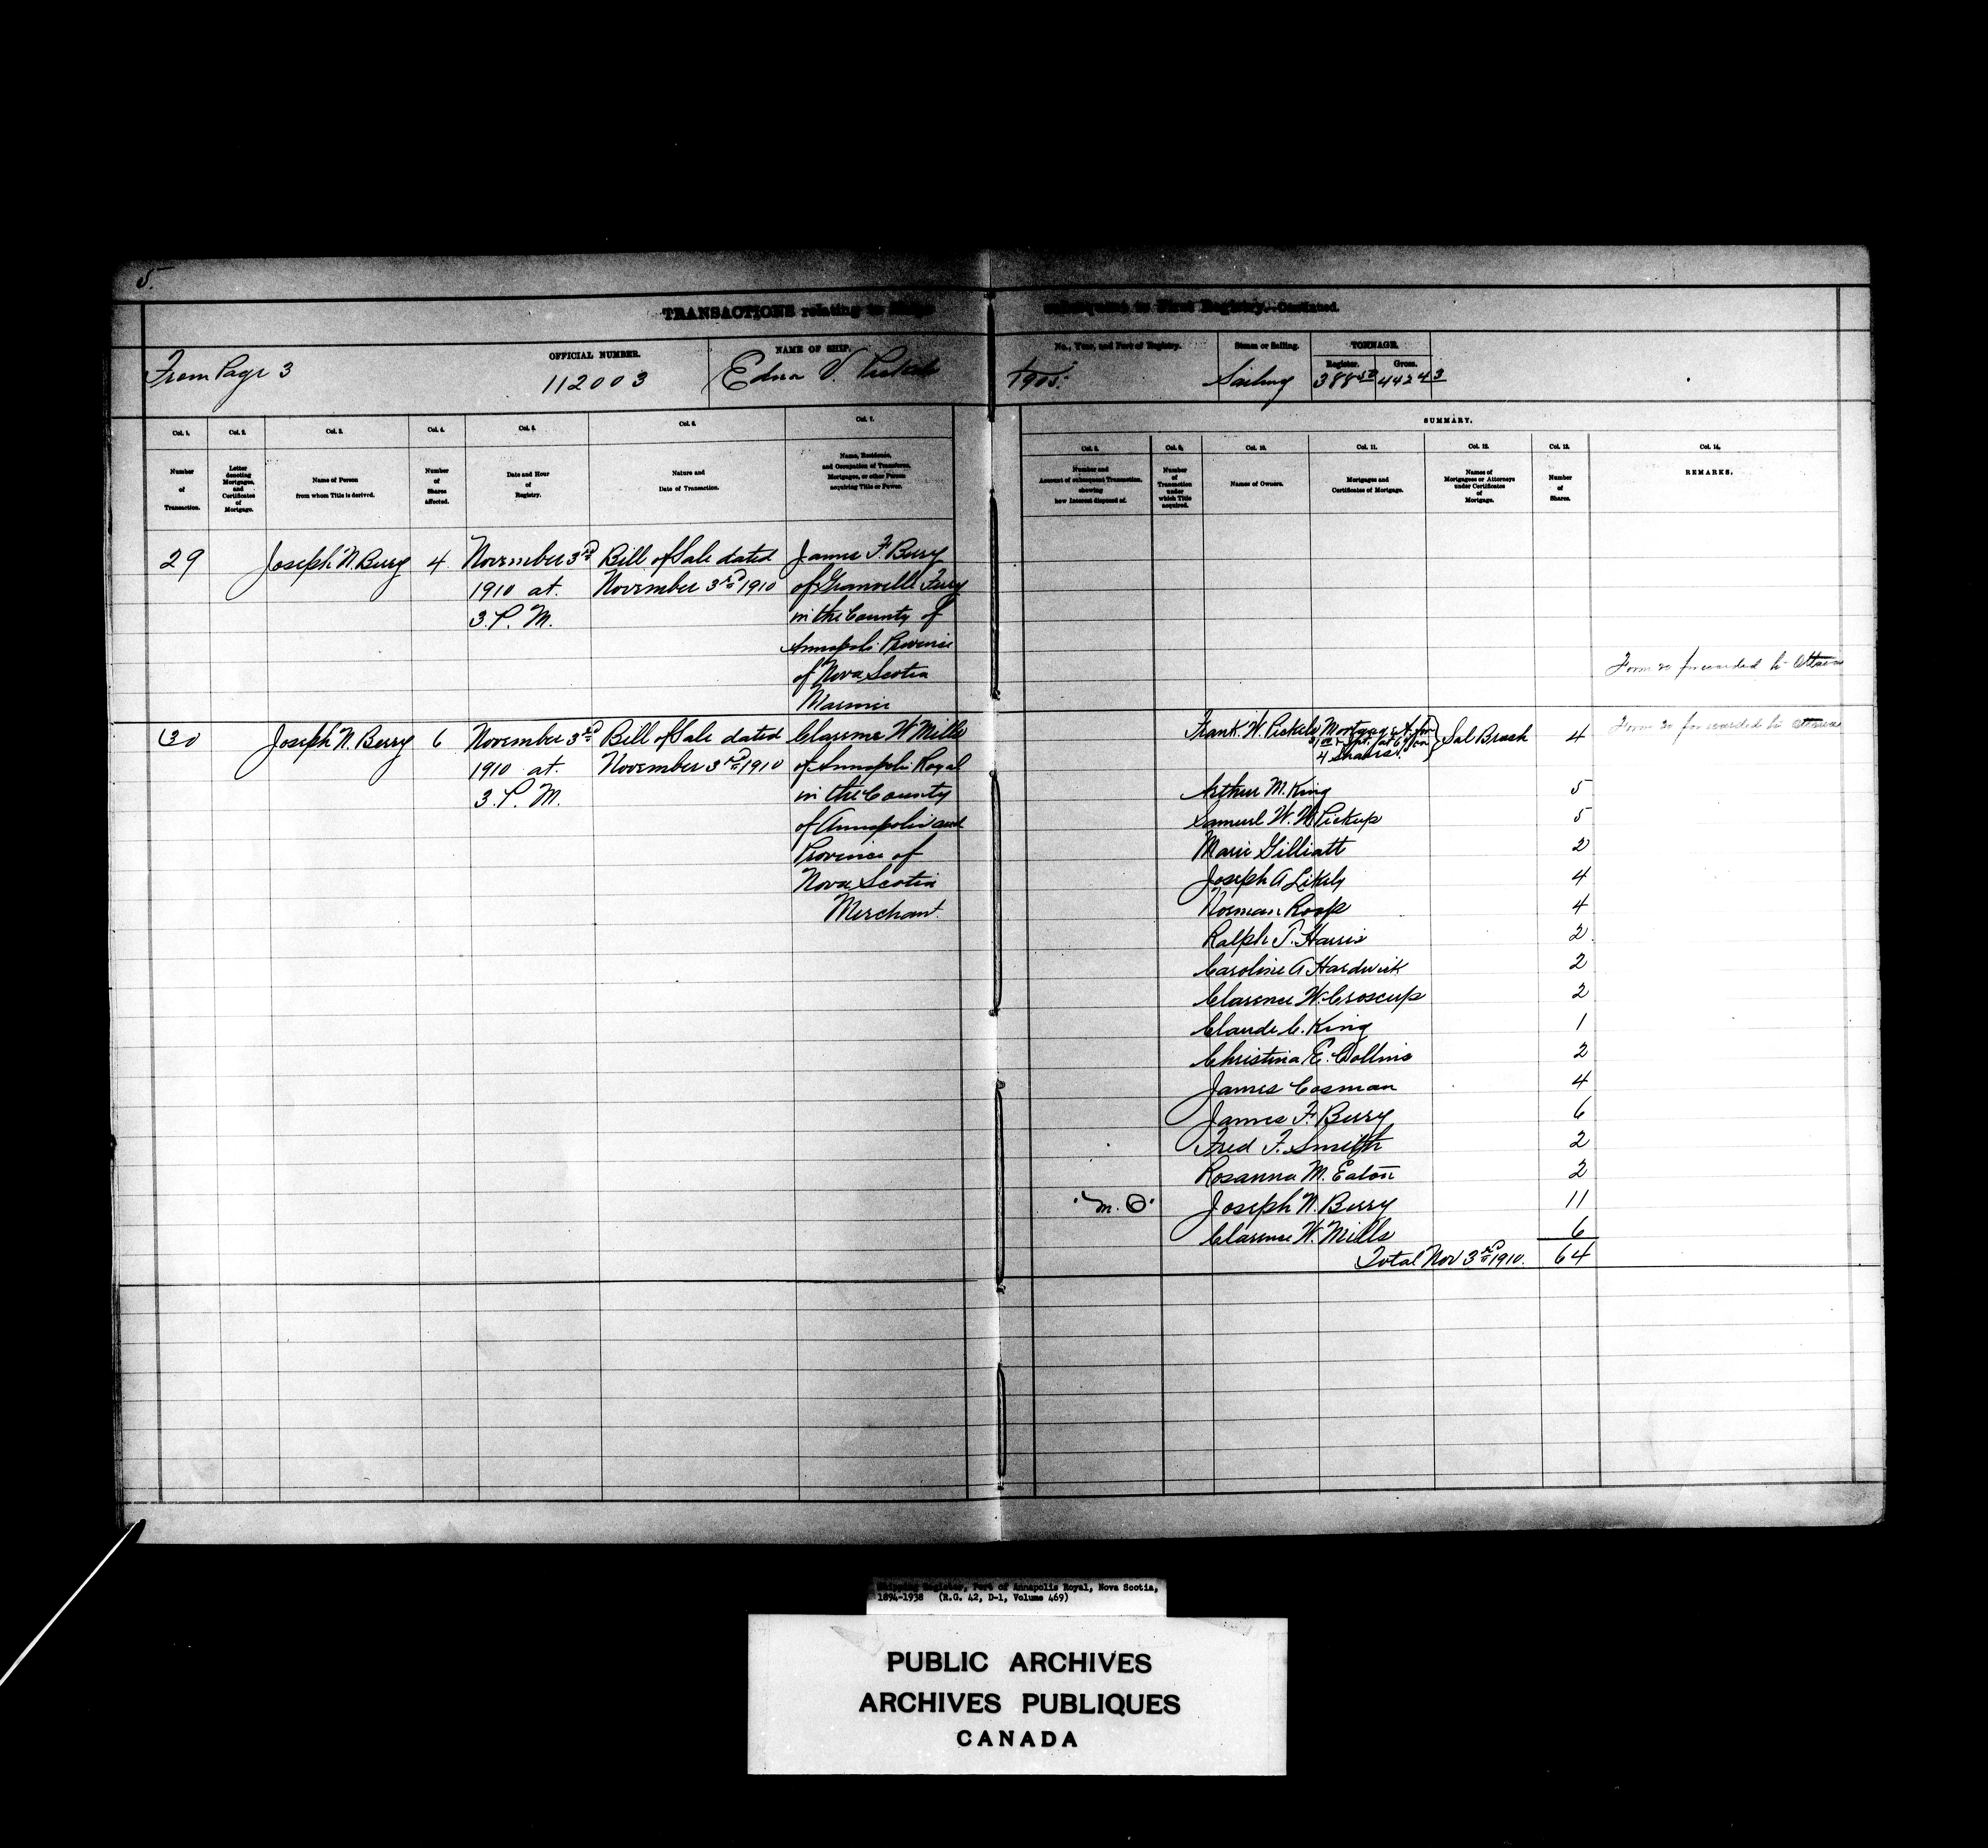 5.
TRANSACTIONS relating to Ships subsequent to First Registry.—Continued.
From Page 3
OFFICIAL NUMBER.
112003
NAME OF SHIP.
Edna V. Pickels
No., Year, and Port of Registry.
1905.
Steam or Sailing.
Sailing
TONNAGE.
Register.
388 50
Gross.
442 43
SUMMARY.
Col. 1.
Number
of
Transaction.
Col. 2.
Letter
denoting
Mortgages,
and
Certificates
of
Mortgage.
Col. 3.
Name of Person
from whom Title is derived.
Col. 4.
Number
of
Shares
affected.
Col. 5.
Date and Hour
of
Registry.
Col. 6.
Nature and
Date of Transaction.
Col. 7.
Name, Residence,
and Occupation of Transferee,
Mortgagee, or other Person
acquiring Title or Power.
Col. 8.
Number and
Account of subsequent Transaction,
showing
how Interest disposed of.
Col. 9.
Number
of
Transaction
under
which Title
acquired.
Col. 10.
Names of Owners.
Col. 11.
Mortgages and
Certificates of Mortgage.
Col. 12.
Names of
Mortgagees or Attorneys
under Certificates
of
Mortgage.
Col. 13.
Number
of
Shares.
Col. 14.
REMARKS.
29 Joseph N. Berry 4 November 3rd Bill of Sale dated James F. Berry
1910 at November 3rd 1910 of Granville Ferry
3. P. M. in the County of
Annapolis Province
of Nova Scotia
Mariner
Form 20 forwarded to Ottawa
30 Joseph N. Berry 6 November 3rd Bill of Sale dated Clarence W Mills
1910 at November 3rd 1910 of Annapolis Royal
3. P. M. in the County
of Annapolis and
Province of
Nova Scotia
Merchant
Frank. W. Pickels Mortgage A for 4
4 Shares.
Form 20 forwarded to Ottawa
Arthur M. King 5
Samuel W. W Pickup 5
Marie Gilliatt 2
Joseph A Likely 4
Norman Roop 4
Ralph T. Harris 2
Caroline A Hardwick 2
Clarence W. Croscup 2
Claude C. King 1
Christina E. Collins 2
James Cosman 4
James F. Berry 6
Fred F. Smith 2
Rosanna M. Eaton 2
"M. O" Joseph N. Berry 11
Clarence W. Mills 6
Total Nov 3rd 1910. 64
Shipping Register, Port of Annapolis Royal, Nova Scotia,
1894-1938 (R.G. 42, D-1, Volume 469)
PUBLIC ARCHIVES
ARCHIVES PUBLIQUES
CANADA